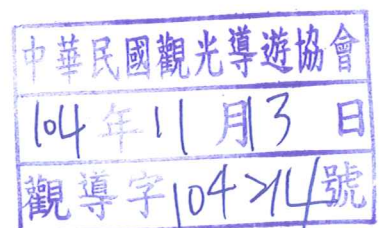 中華民國觀光導遊協會
104年11月3日
觀導字104214號